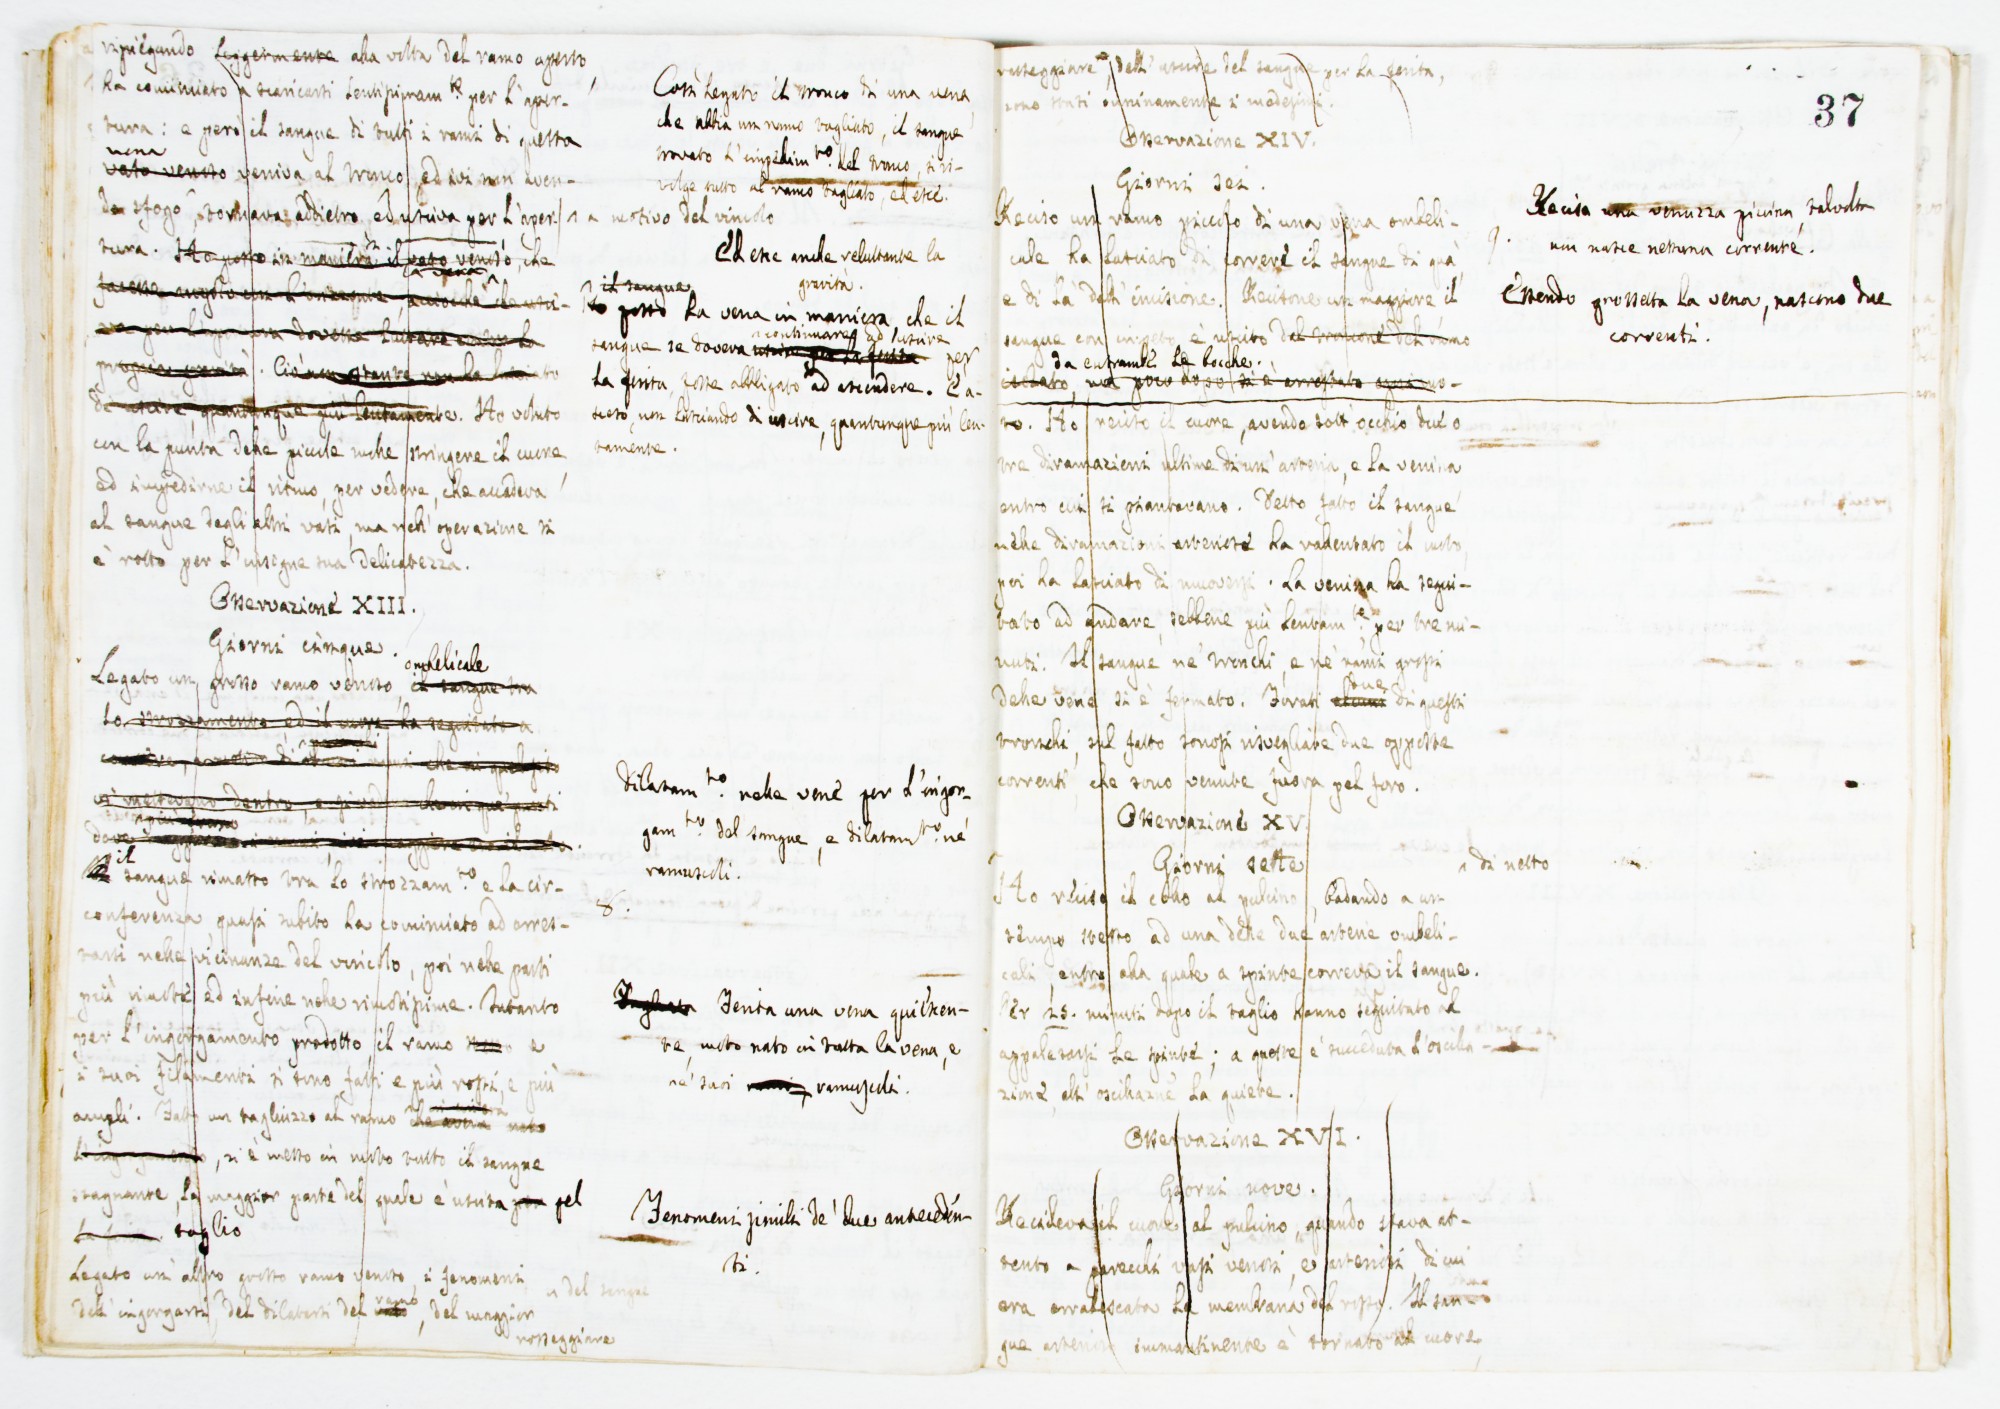 ripiegando leggermente alla volta del ramo aperto
ha cominciato a scaricarsi lentissimam.te per l'aper-
tura: e però il sangue di tutti i rami di questa
vena
vaso venoso veniva al tronco, ed ivi non aven-
do sfogo, tornava addietro, ed usciva per l'aper-
tura. Ho posto in maniera il vaso venoso, che
la vena
facesse angolo con l'orizzonte, acciocchè che usci-
propria gravità. Ciò non ostante non ha lasciato
di uscire, quantunque più lentamente. Ho voluto
con la punta delle piccole molle stringere il cuore
ed impedirne il ritmo, per vedere, che accadeva
al sangue degli altri vasi, ma nell'operazione si
è rotto per l'insigne sua delicatezza.
Osservazione XIII.
Giorni cinque.
ombelicale
Legato un grosso ramo venoso, il sangue tra
lo strozzamento, ed il cuore ha seguitato a
il
sangue rimasto tra lo strozzam.to e la cir-
conferenza quasi subito ha cominciato ad arres-
tarsi nelle vicinanze del vincolo, poi nelle parti
più rimote ed infine nelle rimotissime. Intanto
per l'ingorgamento prodotto, il ramo e
i suoi filamenti si sono fatti e più rossi, e più
ampli. Fatto un tagliuzzo al ramo che aveva
, si è messo in moto tutto il sangue
stagnante, la maggior parte del quale è uscita per pel
taglio
Legato un altro grosso ramo venoso, i fenomeni
dell'ingorgarsi, del dilatarsi del ramo, del maggior
rosseggiare
Così legato il tronco di una vena,
che abbia un ramo tagliato, il sangue
trovato l'impedim.to del tronco, si ri-
volge tutto al ramo tagliato, ed esce.
a motivo del vincolo
Ed esce anche reluttante la
gravità.
il sangue
Ho posto la vena in maniera, che il
continuare ad uscire
sangue se doveva uscire per la ferita per
la ferita, fosse obbligato ad ascendere. E a-
scese, non lasciando di uscire, quantunque più len-
tamente.
Dilatam.to nelle vene per l'ingor-
gam.to del sangue, e dilatam.to ne'
ramuscoli.
8.
Tagliata Ferita una vena quiescen-
te, moto nato in tutta la vena, e
ne' suoi rami, ramuscoli.
Fenomeni simili de' due anteceden-
ti.
del sangue
37
rosseggiare, dell'uscire del sangue per la ferita,
sono stati onninamente i medesimi.
Osservazione XIV.
Giorni sei.
Reciso un ramo piccolo di una vena ombeli-
cale ha lasciato di correre il sangue di quà,
e di là dell'incisione. Recisone un maggiore, il
sangue con impeto è uscito dal troncone del ramo
da entrambe le bocche.
isolato, ma poco dopo si è arrestato ogni mo-
to. Ho reciso il cuore, avendo sott'occhio due o
tre diramazioni ultime di un'arteria, e la venina
entro cui si piantavano. Detto fatto il sangue
nelle diramazioni arteriose ha rallentato il moto,
poi ha lasciato di muoversi. La venina ha segui-
tato ad andare, sebbene più lentam.te, per tre mi-
nuti. Il sangue ne' tronchi, e ne' rami grossi
due
delle vene si è fermato. Forati alcuni di questi
tronchi, sul fatto sonosi risvegliate due opposte
correnti, che sono venute fuora pel foro.
Osservazione XV.
Giorni sette
di netto
Ho reciso il collo al pulcino, badando a un
tempo stesso ad una delle due arterie ombeli-
cali, entro alla quale a spinte correva il sangue.
Per 25. minuti dopo il taglio hanno seguitato ad
appalesarsi le spinte; a queste è succeduta l'oscila-
zione, all'oscilazne la quiete.
Osservazione XVI.
Giorni nove.
Recideva il cuore al pulcino, quando stava at-
tento a parecchi vasi venosi, e arteriosi, di cui
era arrabescata la membrana del rosso. Il san-
gue arterioso immantinente è tornato al cuore,
Recisa una venuzza piccina talvolta
9.
non nasce nessuna corrente.
Essendo grossetta la vena, nascono due
correnti.